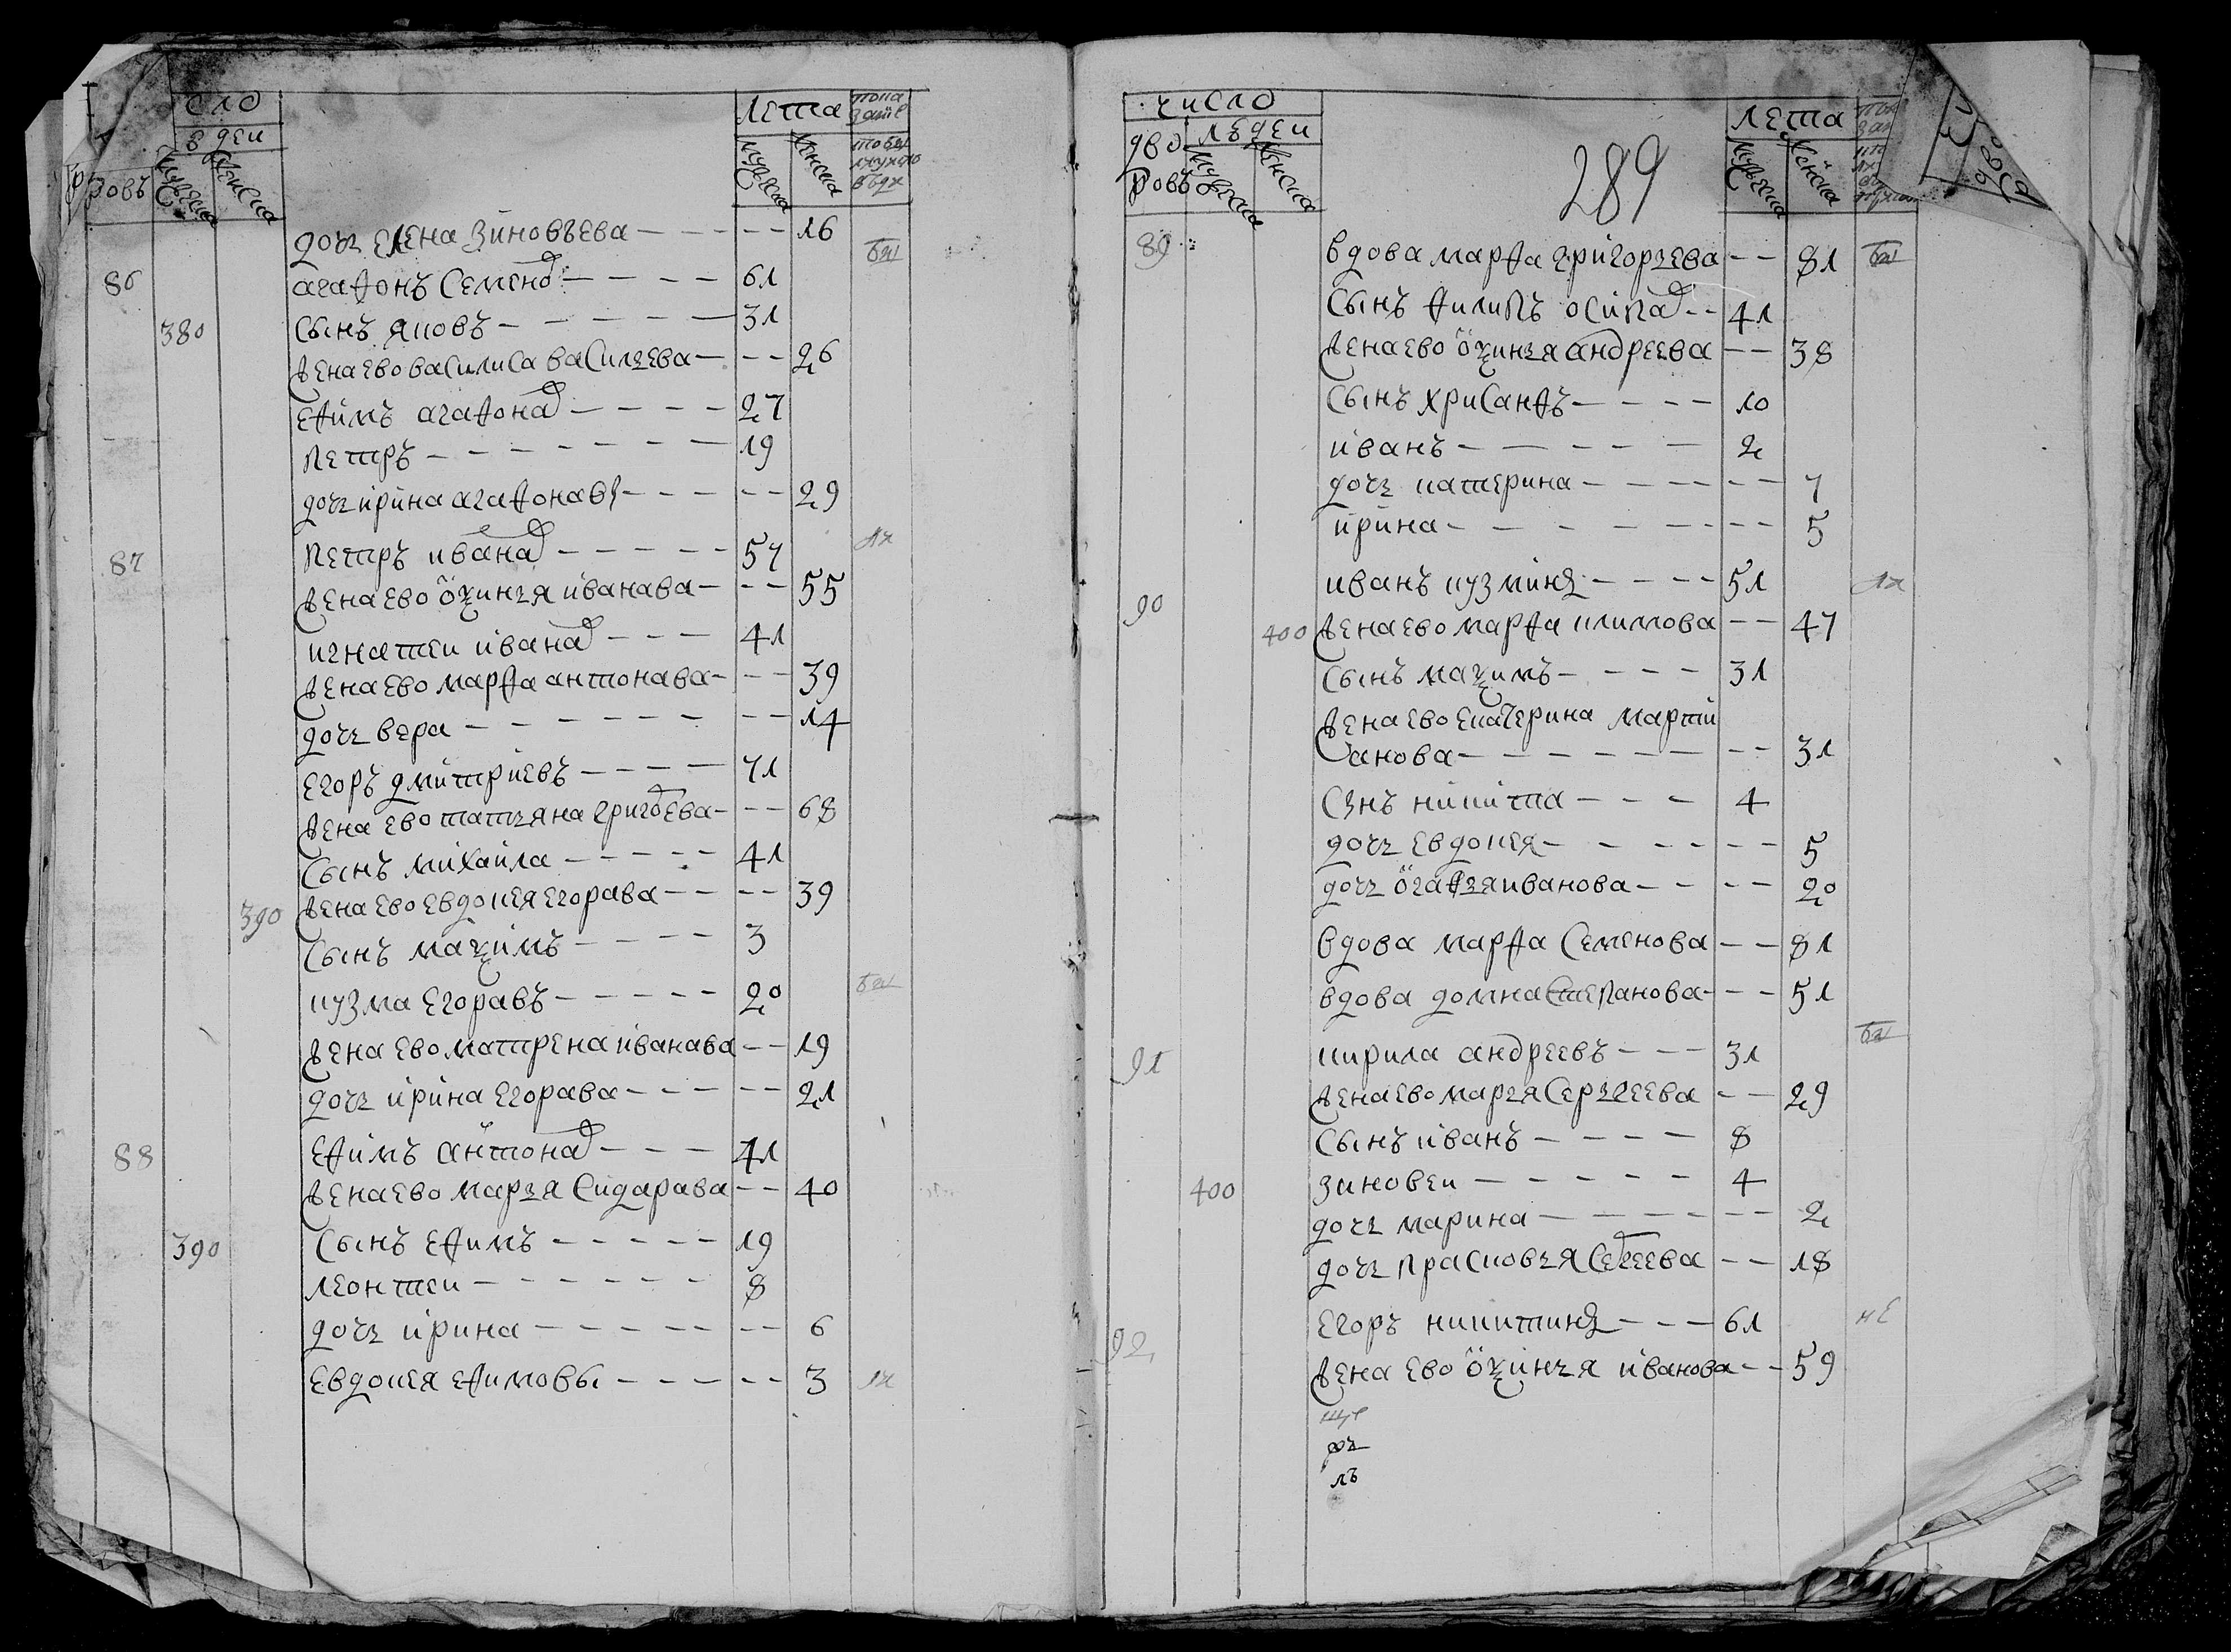 сло
лета
людеи
ровъ мужеска женска
мужеска женска
дочь елена зиновьева - - - - - 16
86 агафонъ семено - - - - 61
380 сынъ яковъ - - - - - 31
жена ево василиса васильева - - - 26
ефимъ агафонов - - - - 27
петръ - - - - - - - 19
дочь ирина агафонавы - - - - - 29
87 петръ иванов - - - - - 57
жена ево ѯинья иванава - - - 55
игнатеи иванов - - - 41
жена ево марфа антонава - - - 39
дочь вера - - - - - - - - 14
егоръ дмитриевъ - - - - 71
жена ево татьяна григоева - - - 68
сынъ михаила - - - - - 41
390 жена ево евдокея егорава - - - - 39
сынъ маѯимъ - - - - 3
кузма егоравъ - - - - - 20
жена ево матрена иванава - - 19
дочь ирина егорава - - - - - 21
88 ефимъ антонов - - - 41
жена ево марья сидарава - - 40
390 сынъ ефимъ - - - - - 19
леонтеи - - - - - - 8
дочь ирина - - - - - - - 6
евдокея ефимовы - - - - - - 3
число
лета
дво людеи
ровъ мужеска женска
мужеска женска
289
89 вдова марфа григорьева - - 81
сынъ филипъ осипов - - 41
жена ево ѯинья андреева - - 38
сынъ хрисанфъ - - - - 10
иванъ - - - - - 2
дочь катерина - - - - - - 7
ирина - - - - - - - 5
90 иванъ кузминъ - - - - 51
400 жена ево марфа климова - - 47
сынъ маѯимъ - - - - 31
жена ево екатерина марти
анова - - - - - - - - 31
сынъ никита - - - 4
дочь евдокея - - - - - - 5
дочь агафья иванова - - - - 20
вдова марфа семенова - - 81
вдова домна степанова - - - 51
91 кирила андреевъ - - - 31
жена ево марья сергеева - - 29
сынъ иванъ - - - - 8
400 зиновеи - - - - - 4
дочь марина - - - - - - - 2
дочь прасковья сегеева - - 18
92 егоръ никитинъ - - - 61
жена ево ѯинья иванова - - 59